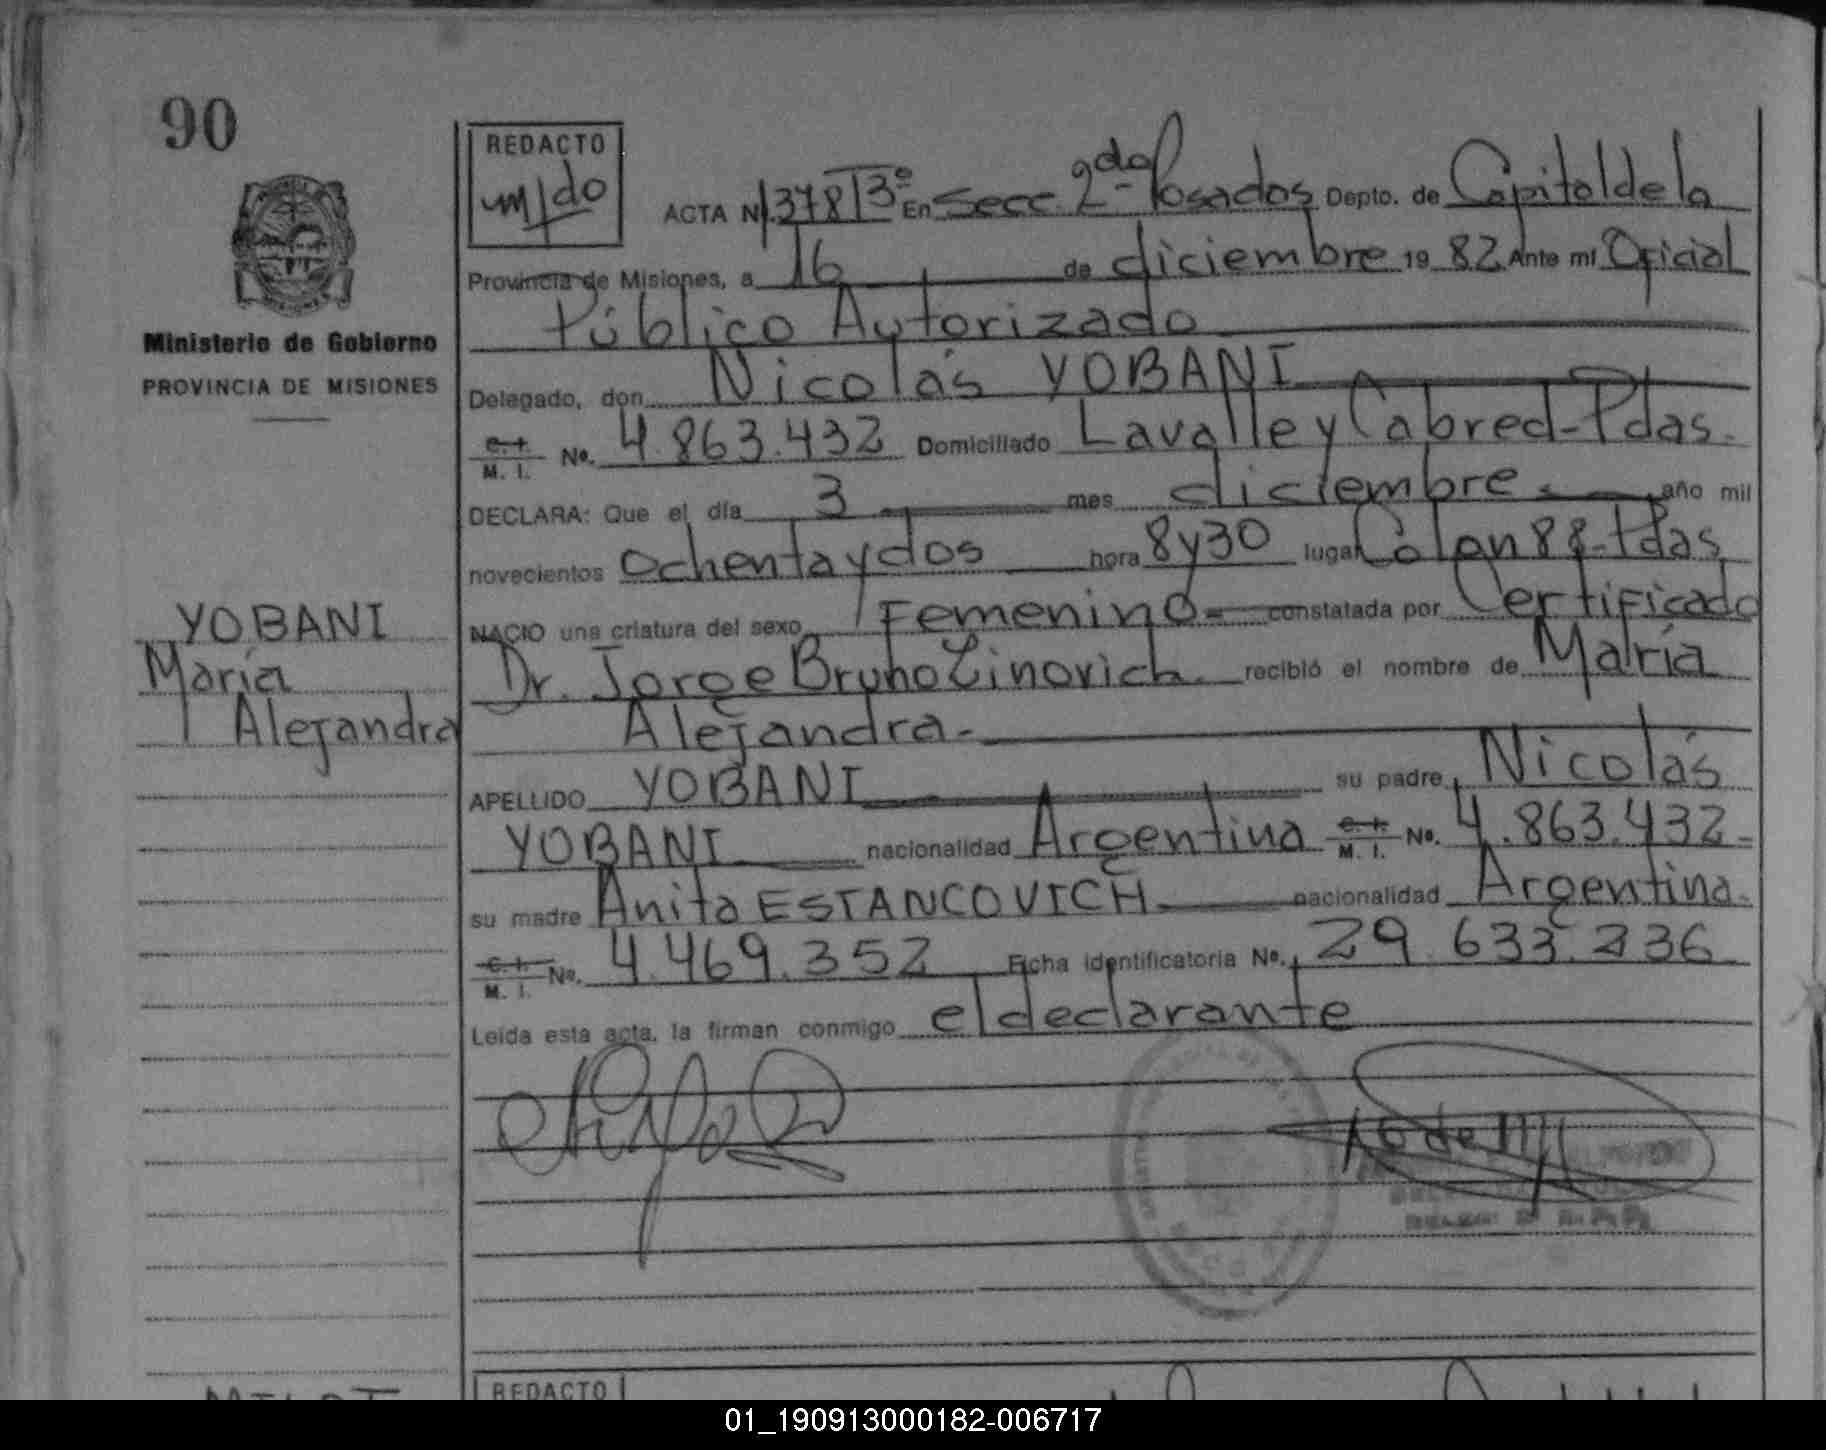 90
REDACTO
ACTA Nº 378 Tº 3º En Secc. 2da. Posadas Depto. de Capital de la
Provincia de Misiones, a 16 de diciembre 19 82 Ante mi Oficial
Público Autorizado
Ministerio de Gobierno
PROVINCIA DE MISIONES
Delegado, don Nicolás YOBANI
C. I. M. I. No. 4.863.432 Domiciliado Lavalle y Cabred - Pdas.
DECLARA: Que el día 3 mes diciembre año mil
novecientos ochenta y dos hora 8 y 30 lugar Colon 88 - Pdas
NACIO una criatura del sexo Femenino constatada por Certificado
YOBANI
María
Alejandra
Dr. Jorge Bruno Zinovich recibió el nombre de María
Alejandra.
APELLIDO YOBANI su padre, Nicolás
YOBANI nacionalidad Argentina C. I. M. I. No. 4.863.432
su madre Anita ESTANCOVICH nacionalidad Argentina
C. I. M. I. No. 4.469.352 Ficha identificatoria No. 29.633.236
Leída esta acta, la firman conmigo el declarante
REDACTO
01_190913000182-006717